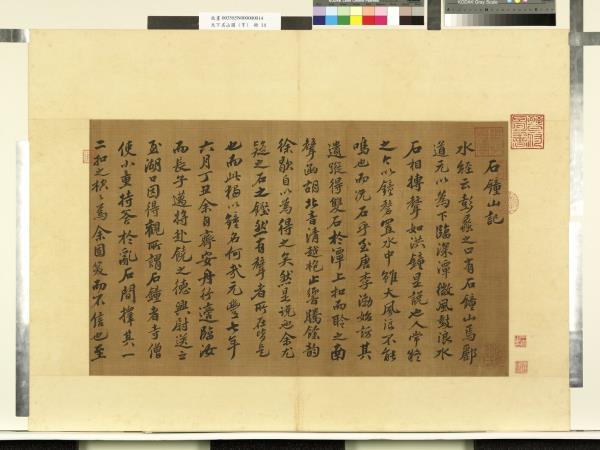 KODAK Gray Scale
石鐘山記
水經云彭蠡之口有石鐘山焉酈
道元以為下臨深潭微風鼓浪水
石相搏聲如洪鐘是說也人常疑
之今以鐘磬置水中雖大風浪不能
鳴也而況石乎至唐李渤始訪其
遺蹤得雙石於潭上扣而聆之南
聲函胡北音清越枹止響騰餘韻
徐歇自以為得之矣然是說也余尤
疑之石之鏗然有聲者所在皆是
也而此獨以鐘名何哉元豐七年
六月丁丑余自齊安舟行適臨汝
而長子邁將赴饒之德興尉送之
至湖口因得觀所謂石鐘者寺僧
使小童持斧於亂石間擇其一
二扣之硿〻焉余固笑而不信也至